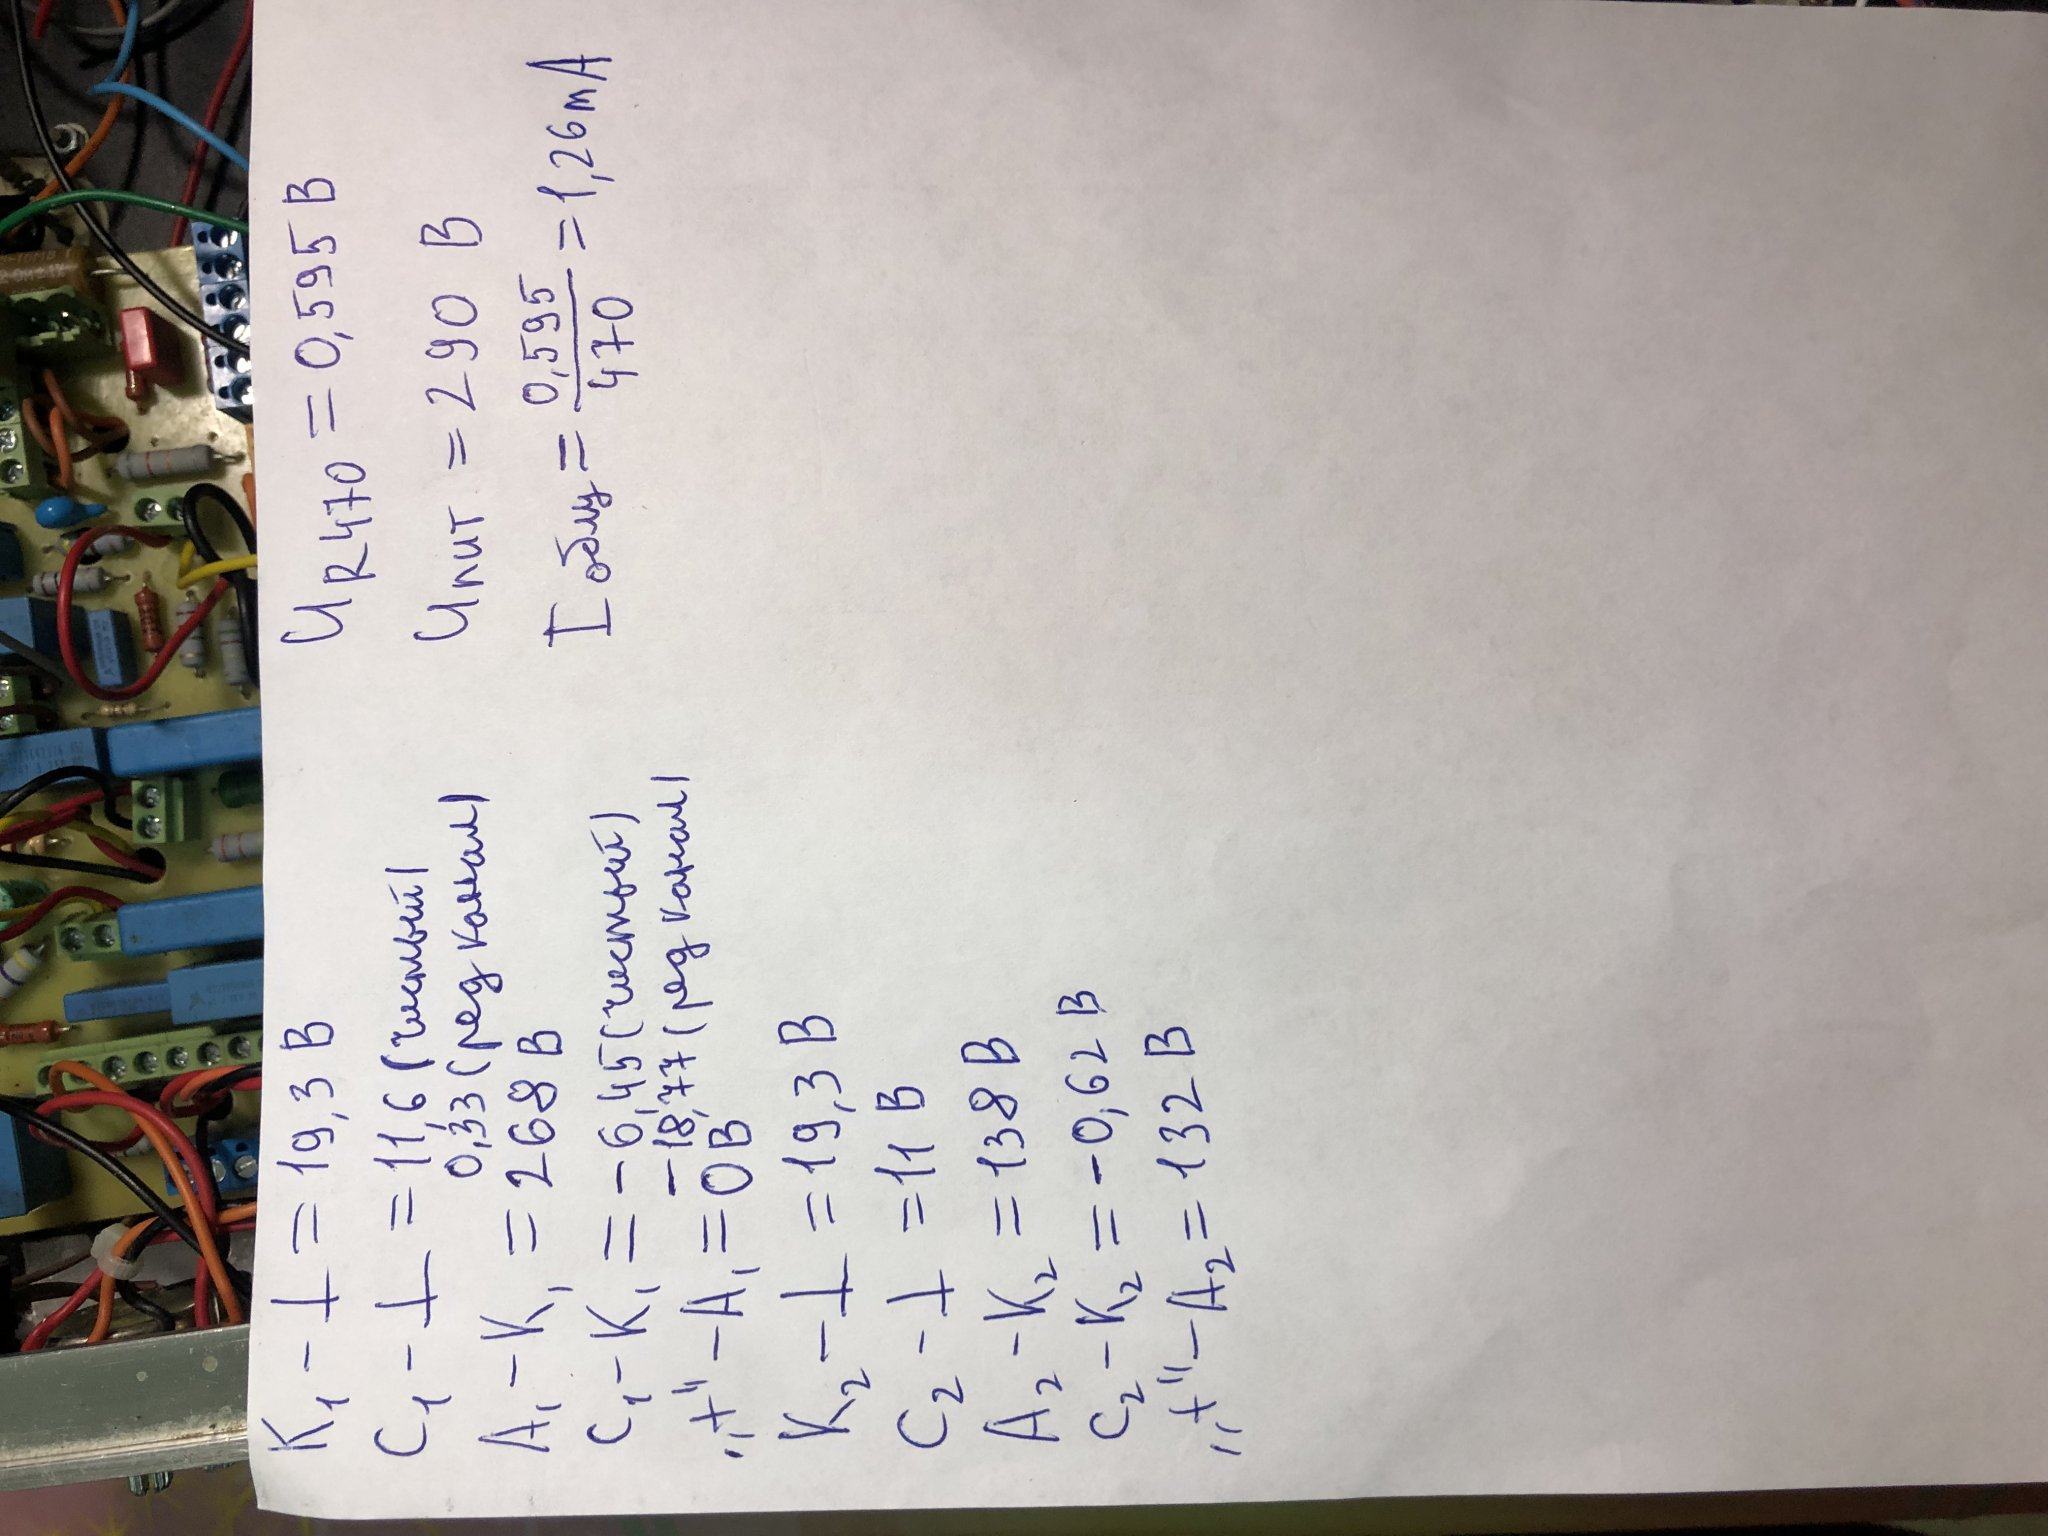 K₁ - ⊥ = 19,3 В
C₁ - ⊥ = 11,6 (чистый)
0,33 (ред канал)
A₁ - K₁ = 268 В
C₁ - K₁ = -6,45 (чистый)
-18,77 (ред канал)
„+" - A₁ = 0В
K₂ - ⊥ = 19,3 В
C₂ - ⊥ = 11 В
A₂ - K₂ = 138 В
C₂ - K₂ = -0,62 В
„+" - A₂ = 132 В
U R470 = 0,595 В
U пит = 290 В
I общ = 0,595 / 470 = 1,26 mA